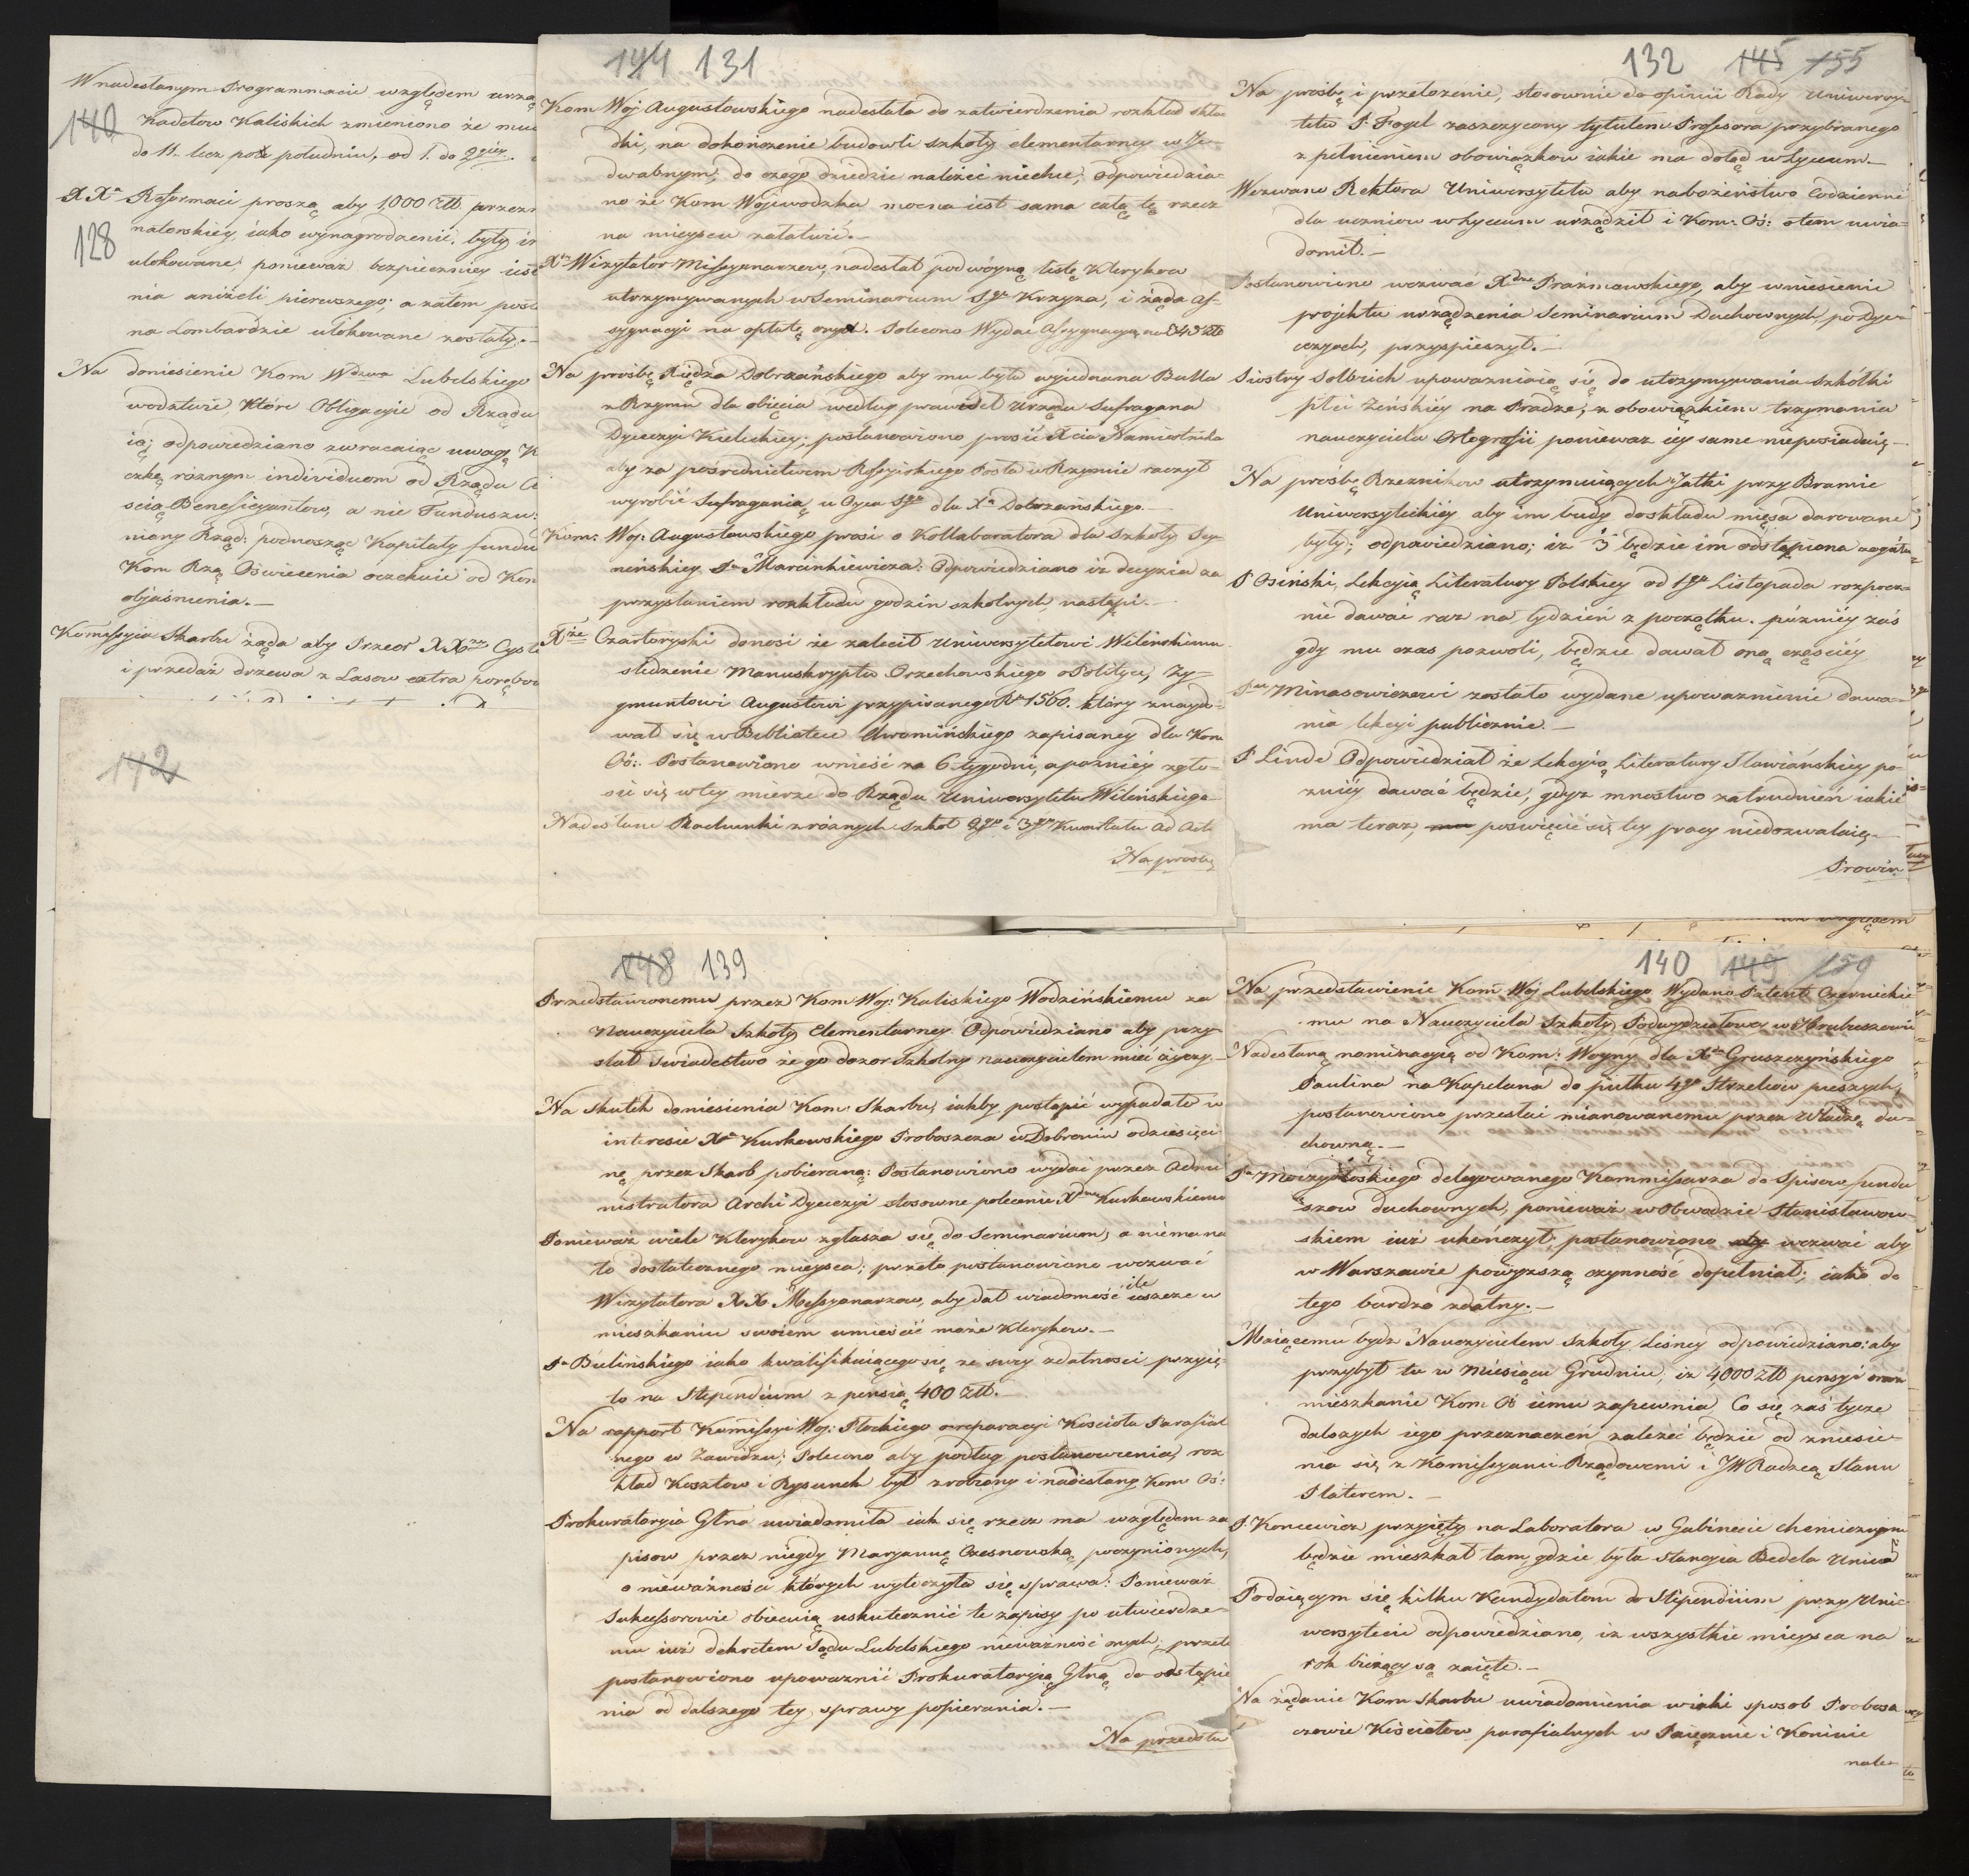 W nadesłanym Programmacie względem urzą
140
Kadetow Kaliskich zmieniono że
do 11. lecz po południu, od 1. do 2giey.
XXn Reformaci proszą aby 1000 Złł przezn
128
natorskiey, iako wynagrodzenie, były in
ulokowane, ponieważ bezpieczniey iest
nia aniżeli pierwszego; a zatem post
na Lombardzie ulokowane zostały.—
Na doniesienie Kom Wdzwa Lubelskiego
wodztwie, które Obligacyie od Rządu
ią; odpowiedziano zwracaiąc uwagę K
czkę rożnym individuom od Rządu
scią Beneficyantow, a nie Funduszu:
niony Rząd: podnosząc Kapitały fundu
Kom Rzą Oświecenia oczekuie od Kom
objaśnienia.—
Komissyia Skarbu żąda aby Przeor XX Cyste
i przedaż drzewa z Lasow extra porębow
142
144 131
Kom Woj Augustowskiego nadesłała do zatwierdzenia rozkład skła
dki, na dokończenie budowli szkoły elementarney w Je-
dwabnym, do czego dziedzic należeć niechce; odpowiedzia-
no że Kom Wojewodzka mocna iest sama całą tę rzecz
na mieyscu załatwić.—
Xdz Wizytator Missyonarzow, nadesłał podwóyną listę Klerykow
utrzymywanych w Seminarium Sgo Krzyża, i żąda as-
sygnacyi na opłatę onych. Polecono Wydac Assygnacyą na
Na prosbę Xiędza Dobrzańskiego aby mu była wyjednana Bulla
z Rzymu dla obięcia według prawideł Urzędu Sufragana
Dyecezyi Kieleckiey; postanowiono prosić Xcia Namiestnika
aby za pośrednictwem Rossyiskiego Posła w Rzymie raczył
wyrobić Sufraganią u Oyca Sgo dla Xa Dobrzańskiego.—
Kom: Woj: Augustowskiego prosi o Kollaboratora dla Szkoły Sey-
neńskiey Pa Marcinkiewicza: Odpowiedziano iż decyzia za
przysłaniem rozkładu godzin szkolnych nastąpi.—
Xże Czartoryski donosi że zalecił Uniwersytetowi Wileńskiemu
śledzenie Manuskryptu Orzechowskiego o Polityce, Zy-
gmuntowi Augustowi przypisanego Ru 1560. który znaydo-
wał się w Bibliotece Chromińskiego zapisaney dla Kom
Oś:. Postanowiono wnieść za 6. tygodni, a poźniey zgło-
sić się w tey mierze do Rządu Uniwersytetu Wileńskiego
Nadesłane Rachunki z różnych Szkoł 2go i 3go Kwartału ad Acta
Na prosbę
132 145 155
Na prosbę i przełożenie, stosownie do opinii Rady Uniwersy-
tetu P. Fogel zaszczycony tytułem Profesora przybranego
z pełnieniem obowiązkow iakie ma dotąd w Lyceum.—
Wezwano Rektora Uniwersytetu aby nabożeństwo Codzienne
dla uczniow w Lyceum urządził i Kom: Oś: o tem uwia-
domił.—
Postanowiono wezwać Xdza Prażmowskiego, aby wniesienie
projektu urządzenia Seminarium Duchownych, po Dye-
cezyach, przyspieszył.—
Siostry Solbrich upoważniaią się do utrzymywania Szkółki
płci Żeńskiéy na Pradze; z obowiązkiem trzymania
nauczyciela Ortografii ponieważ iey same nieposiadaią.—
Na prośbę Rzeznikow utrzymuiących Jatki przy Bramie
Uniwersyteckiéy aby im budy doskładu mięsa darowane
były; odpowiedziano; iż 3 będzie im odstąpiona
P Osiński, Lekcyią Literatury Polskiey od 1go Listopada rozpocz-
nie dawać raz na tydzień z początku. późniéy zaś
gdy mu czas pozwoli, będzie dawał oną częściéy
Panu Minasowiczowi zostało wydane upoważnienie dawa-
nia lekcyi publicznie.—
P Linde Odpowiedział że Lekcyią Literatury Sławiańskiey po-
zniey dawać będzie, gdyż mnostwo zatrudnień iakie
ma teraz, poswięcić się tey pracy niedozwalaią.—
Prowin
148 139
Przedstawionemu przez Kom Woj: Kaliskiego Wodzińskiemu za
Nauczyciela Szkoły Elementarney. Odpowiedziano aby przy-
słał świadectwo że go dozor Szkolny nauczycielem mieć życzy.—
Na skutek doniesienia Kom: Skarbu, iakby postąpić wypadało w
interesie Xa Kurkowskiego Proboszcza w Dobroniu o dziesięci-
nę przez Skarb pobieraną: Postanowiono wydać przez Admi
nistratora Archi Dyecezyi stosowne polecenie Xdzu Kurkowskiemu
Ponieważ wiele Klerykow zgłasza się do Seminarium, a niema na
to dostatecznego mieysca; przeto postanowiono wezwać
Wizytatora XX Missyonarzow, aby dał wiadomość ile ieszcze w
mieszkaniu swoiem umieścić może Klerykow.—
Pa Bielińskiego iako kwalifikuiącego się ze swey zdatności przyię-
to na Stypendium z pensią 400 Złł.—
Na rapport Komissyi Woj: Płockiego o reparacyi Kościoła Parafial
nego w Zawidzu; Polecono aby podług postanowienia, roz
kład Kosztow i Rysunek był zrobiony i nadesłany Kom Oś:
Prokuratoryia Głna uwiadomiła iak się rzecz ma względem za
pisow przez niegdy Maryannę Czesnowską poczynionych,
o nieważności których wytoczyła się sprawa: Ponieważ
Sukcessorowie obiecuią uskutecznić te zapisy po utwierdze-
niu iuż dekretem Sądu Lubelskiego nieważność onych; przeto
postanowiono upoważnić Prokuratoryią Głną do odstąpie
nia od dalszego tey sprawy popierania.—
Na przedsta
140 149 159
Na przedstawienie Kom Woj Lubelskiego Wydano Patent Czernickie
mu na Nauczyciela Szkoły Podwydziałowey w Hrubieszowie
Nadesłaną nominacyią od Kom: Woyny dla Xa Gruszczyńskiego
Paulina na Kapelana do pułku 4go Strzelcow pieszych,
postanowiono przesłać mianowanemu przez Władzę du-
chowną.—
delegowanego Kommissarza do Spisow fundu
szow duchownych, ponieważ w Obwodzie Stanisławow-
skiem iuż ukończył, postanowiono wezwać aby
w Warszawie powyższą czynność dopełniał; iako do
tego bardzo zdatny.—
Maiącemu bydz Nauczycielem Szkoły Leśney odpowiedziano: aby
przybył tu w Miesiącu Grudniu, iż 4000 Złł pensyi oraz
mieszkanie Kom Oś iemu zapewnia, Co się zaś tycze
dalszych iego przeznaczeń zależeć będzie od zniesie-
nia się z Komissyiami Rządowemi i JW Radzcą Stanu
Platerem.—
P. Koncewicz przyięty na Laboratora w Gabinecie chemicznym
będzie mieszkał tam, gdzie była stancyia Bedela Uniwe
Podaiącym się kilku Kandydatom do Stipendium przy Uni-
wersytecie odpowiedziano, iż wszystkie mieysca na
rok bieżący są zaięte.—
Na żądanie Kom Skarbu uwiadomienia w iaki sposob Probosz
czowie Kościołow parafialnych w Paięcznie i Koninie
nale-